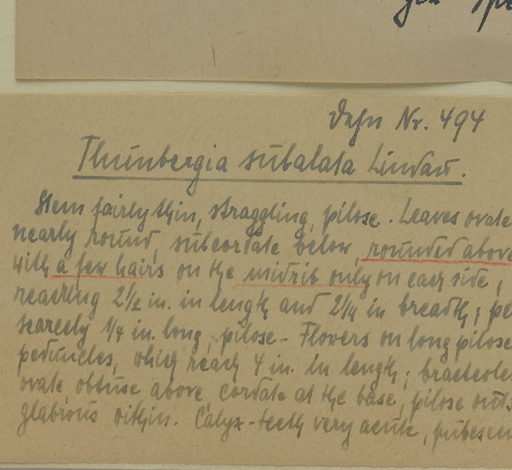 Nr. 494
Thunbergia subalata Lindau.
Stem fairly thin, straggling, pilose. Leaves ovate
nearly round, subcordate below, rounded above
with a few hairs on the midrib only on each side,
reaching 2½ in. in length and 2¼ in breadth; pe
scarcely ¼ in. long, pilose - Flowers on long pilose
peduncles, which reach 4 in. in length; bracteoles
ovate obtuse above, cordate at the base, pilose outs
glabrous within. Calyx-teeth very acute, pubescen